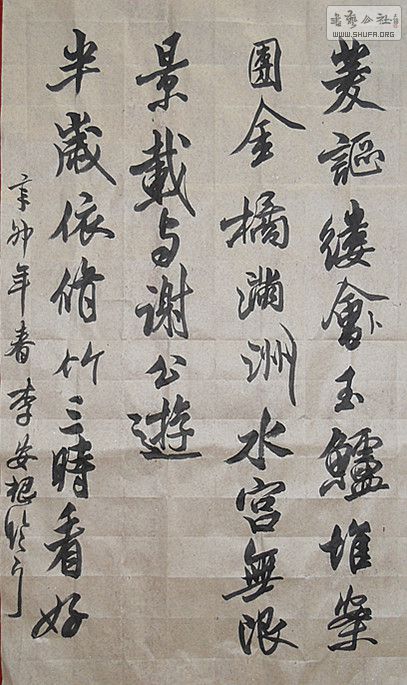 菱謳縷會玉鱸堆案
團金橘滿洲水宮無限
景載与謝公遊
半歲依脩竹三時看好
辛卯年春李安根
書藝公社
WWW.SHUFA.ORG